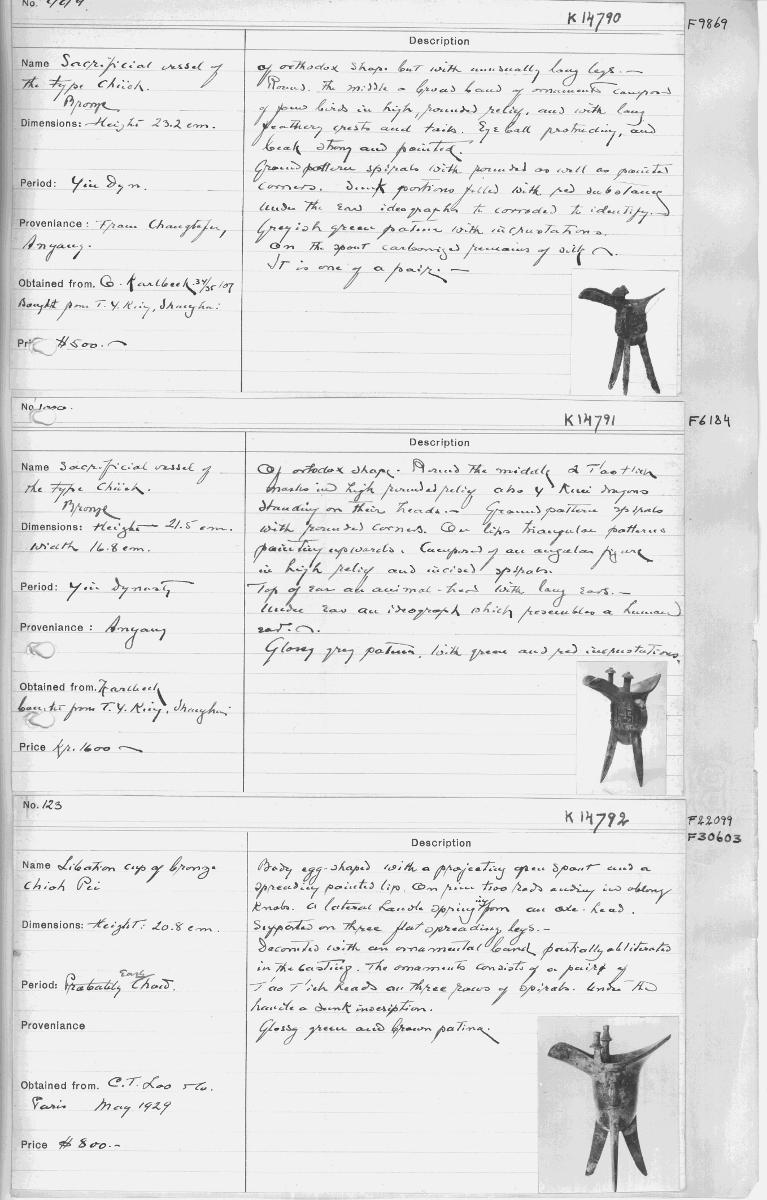 No.
K 14790
F9869
Description
Name Sacrificial vessel of
the type Chüeh.
Bronze
Dimensions: Height 23.2 cm.
Period: Yin Dyn.
Proveniance: From Changtefu,
Anyang.
Obtained from. O. Karlbeck 34/35 107
Bought from T. Y. King, Shanghai
Pri $500.—
of orthodox shape but with unusually long legs.—
Round the middle a broad band of ornaments composed
of four birds in high, rounded relief, and with long
feathery crests and tails. Eye ball protruding, and
beak strong and pointed.
Ground pattern spirals with rounded as well as pointed
corners. Sunk portions filled with red substance
Under the ear ideographs to corroded to identify.—
Greyish green patina with incrustations.
On the spout carbonized remains of silk
It is one of a pair.—
No
K 14791
F6184
Description
Name Sacrificial vessel of
the type Chüeh.
Bronze
Dimensions: Height 21.5 cm.
Width 16.8 cm.
Period: Yin Dynasty
Proveniance: Anyang
Obtained from. Karlbeck
bought from T. Y. King, Shanghai
Price Kr. 1600 —
Of orthodox shape. Round the middle 2 T'ao t'ieh
masks in high rounded relief also 4 Kuei dragons
standing on their heads.— Ground pattern spirals
with rounded corners. On lips triangular patterns
pointing upwards. Composed of an angular figure
in high relief and incised spirals.
Top of ear an animal-head with long ears.—
Under ear an ideograph which resembles a human
ear.
Glossy grey patina, with green and red incrustations.
No. 123
K 14792
F22099
F30603
Description
Name Libation cup of bronze
Chioh Pei
Dimensions: Height: 20.8 cm.
Period: Probably Early Chow.
Proveniance
Obtained from. C. T. Loo & Co.
Paris May 1929
Price $ 800.-
Body egg-shaped with a projecting open spout and a
spreading pointed lip. On rim two rods ending in oblong
knobs. A lateral handle springing from an oxe-head.
Supported on three flat spreading legs.—
Decorated with an ornamental band partially obliterated
in the casting. The ornaments consists of a pair of
T'ao T'ieh heads on three rows of spirals. Under the
handle a sunk inscription.
Glossy green and brown patina.